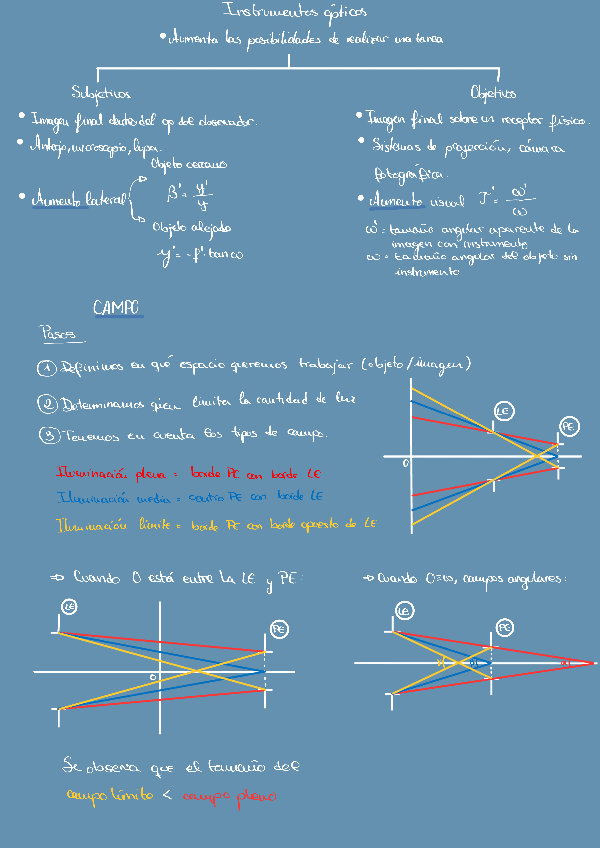 Instrumentos ópticos
• Aumenta las posibilidades de realizar una tarea
Subjetivos
• Imagen final dentro del ojo del observador.
• Anteojo, microscopio, lupa.
• Aumento lateral
Objeto cercano
β' = y'/y
Objeto alejado
y' = -f'·tan ω
Objetivos
• Imagen final sobre un receptor físico.
• Sistemas de proyección, cámara
fotográfica.
• Aumento visual Γ' = ω'/ω
ω' = tamaño angular aparente de la
imagen con instrumento
ω = tamaño angular del objeto sin
instrumento
CAMPO
Pasos
① Definimos en qué espacio queremos trabajar (objeto/imagen)
② Determinamos quien limita la cantidad de luz
③ Tenemos en cuenta los tipos de campo.
Iluminación plena = borde PE con borde LE
Iluminación media = centro PE con borde LE
Iluminación límite = borde PE con borde opuesto de LE
LE
PE
O
⇒ Cuando O está entre la LE y PE:
LE
PE
O
→ Cuando O=∞, campos angulares:
LE
PE
Se observa que el tamaño del
campo límite < campo pleno